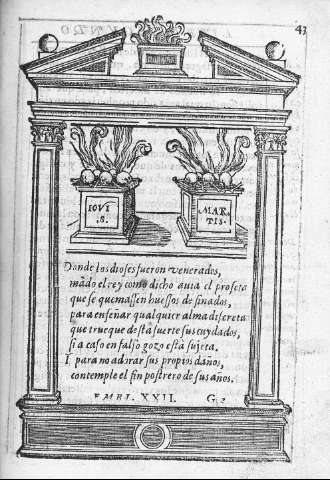 43
IOVI
S.
MAR
TIS.
Donde los dioses fueron venerados,
mãdo el rey como dicho auia el profeta
que se quemassen huessos de finados,
para enseñar qualquier alma discreta
que trueque desta suerte sus cuydados,
si a caso en falso gozo està sujeta,
I para no adorar sus propios daños,
contemple el fin postrero de sus años.
EMBL. XXII. G 3